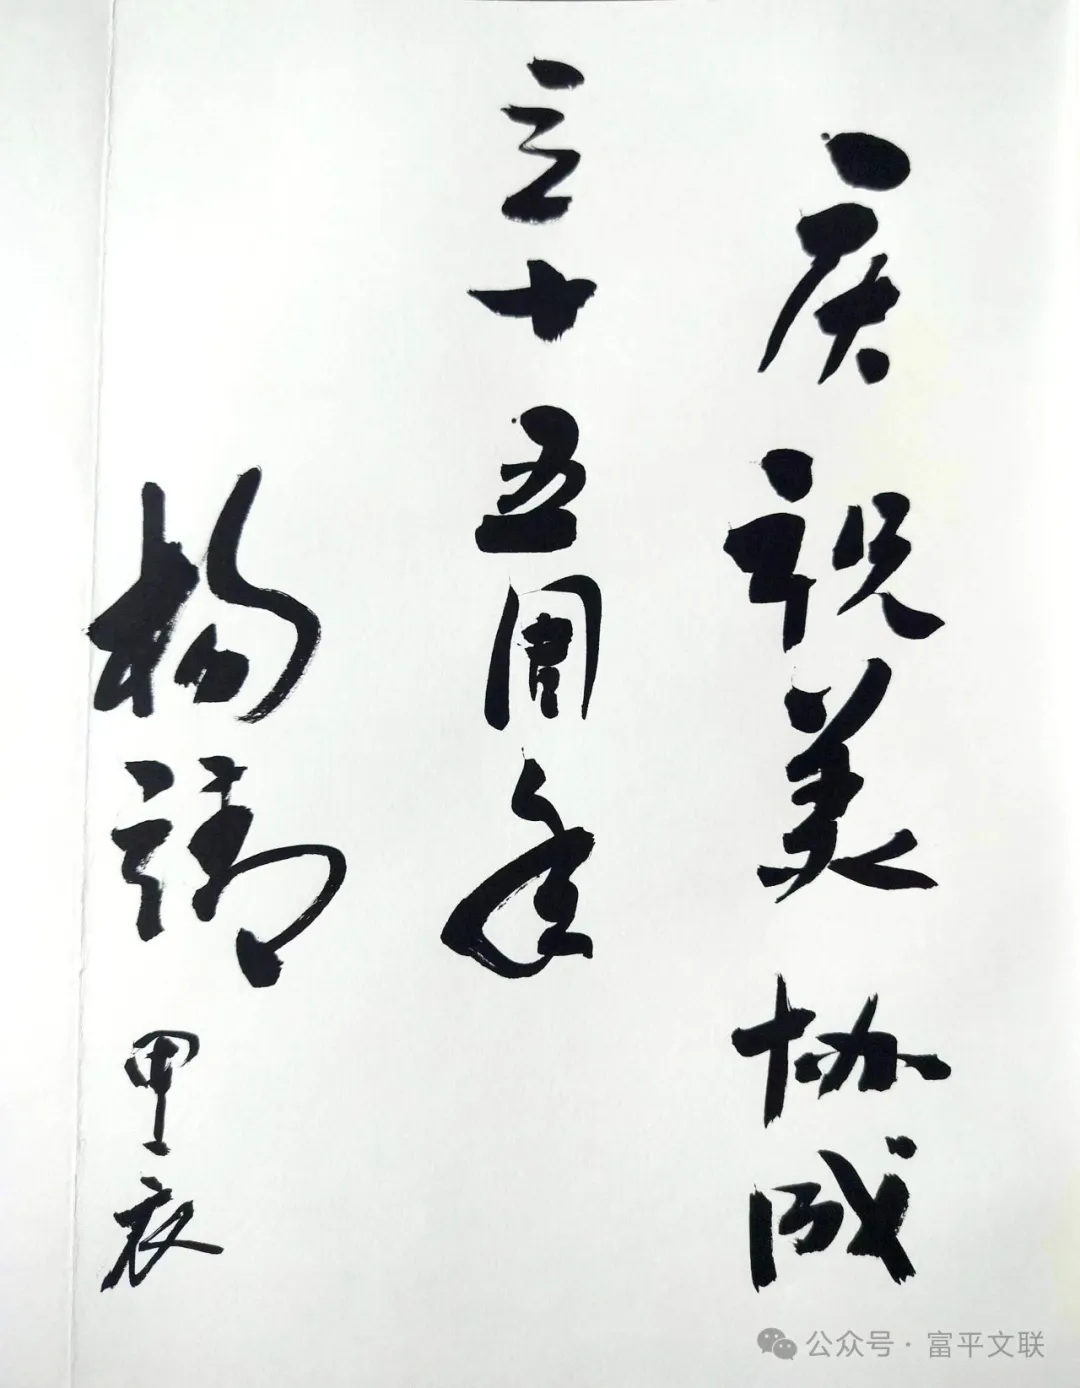 庆祝美协成
立十五周年
杨
甲辰
公众号·富平文联